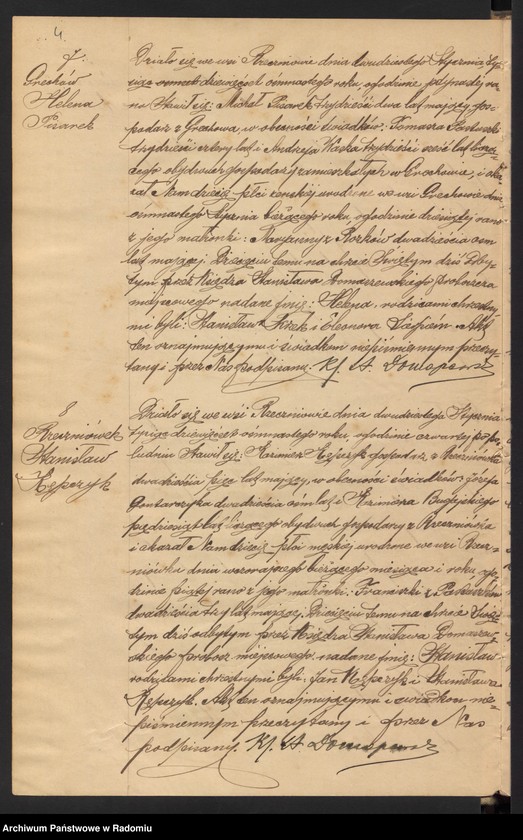 4.
7.
Grechów
Helena
Pisarek
Działo się we wsi Rzeczniowie dnia dwudziestego Stycznia tysiąc
dziewięćset ośmnastego roku, o godzinie jedynastej ra-
no Stawił się: Michał Pisarek trzydzieści dwa lat mający gos-
podarz z Grechowa, w obecności świadków: Tomasza
trzydzieści cztery lat i Andrzeja Wącka trzydzieści sześć lat liczą-
cego obydwóch gospodarzy zamieszkałych w Grechowie, i oka-
zał Nam dziecię płci żeńskiej urodzone we wsi Grechowie dnia
ośmnastego Stycznia bieżącego roku, o godzinie dziewiątej rano
z jego małżonki: Maryanny z dwadzieścia ośm
lat mającej. Dziecięciu temu na chrzcie Świętym dziś odby-
tym przez Księdza Stanisława Domaszewskiego proboszcza
miejscowego nadane imię: Helena, rodzicami chrzestny-
mi byli: Stanisław i Eleonora Akt
ten oznajmującemu i świadkom niepiśmiennym przeczy-
tany i przez Nas podpisany. Kś. St.
8
Rzeczniówek
Stanisław
Kępczyk
Działo się we wsi Rzeczniowie dnia dwudziestego Stycznia
tysiąc dziewięćset ośmnastego roku, o godzinie czwartej po po-
łudniu Stawił się: Kazimierz Kępczyk gospodarz z Rzeczniówka
dwadzieścia pięć lat mający, w obecności świadków: Józefa
Gontarczyka dwadzieścia ośm lat i Kazimierza
pięćdziesiąt lat liczącego obydwóch gospodarzy z Rzeczniowa
i okazał Nam dziecię płci męskiej urodzone we wsi Rzecz-
niówku dnia wczorajszego bieżącego miesiąca i roku, o go-
dzinie piątej rano z jego małżonki: Franciszki z
dwadzieścia trzy lat mającej. Dziecięciu temu na chrzcie Świę-
tym dziś odbytym przez Księdza Stanisława Domaszew-
skiego proboszcza miejscowego nadane imię: Stanisław
rodzicami chrzestnymi byli: Jan Kępczyk i Stanisława
Kępczyk. Akt ten oznajmującemu i świadkom nie-
piśmiennym przeczytany i przez Nas
podpisany. Kś. St.
Archiwum Państwowe w Radomiu